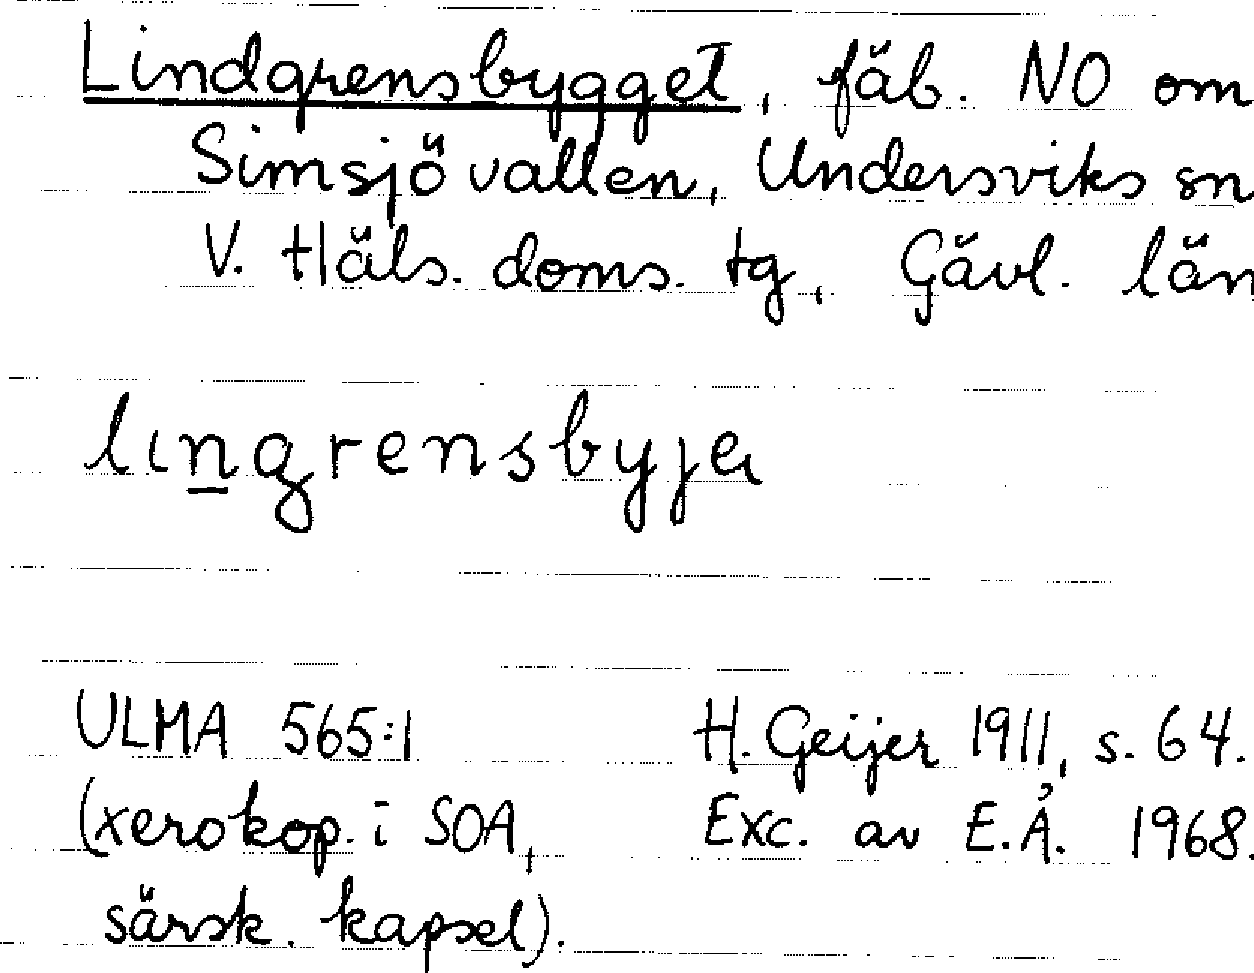 Lindgrensbygget, fäb. NO om
Simsjövallen, Undersviks sn
V. Häls. doms. tg, Gävl. län
lıngrensbyjeı
ULMA 565:1 H. Geijer 1911, s. 64.
(xerokop. i SOA, Exc. av E.Å. 1968.
särsk. kapsel).